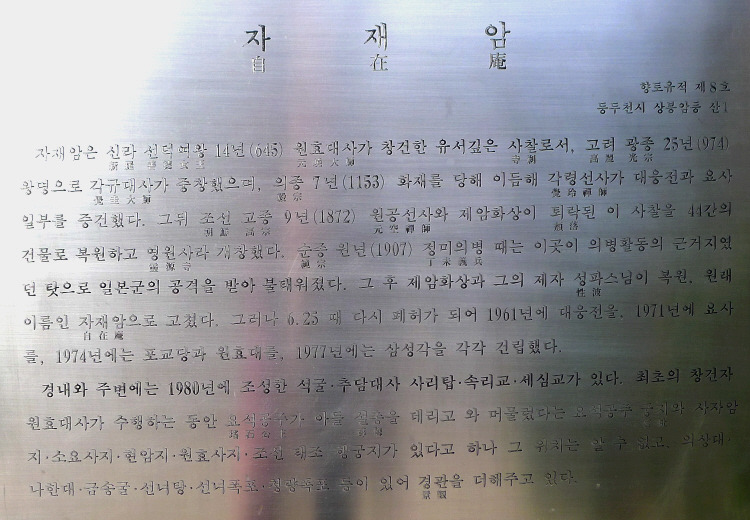 자 재 암
自 在 庵
향토유적 제8호
동두천시 상봉암동 산1
자재암은 신라 선덕여왕 14년(645) 원효대사가 창건한 유서깊은 사찰로서, 고려 광종 25년(974)
新羅 善德女王 元曉大師 寺刹 高麗 光宗
왕명으로 각규대사가 중창했으며, 의종 7년(1153) 화재를 당해 이듬해 각령선사가 대웅전과 요사
覺圭大師 毅宗 覺玲禪師
일부를 중건했다. 그뒤 조선 고종 9년(1872) 원공선사와 제암화상이 퇴락된 이 사찰을 44간의
朝鮮 高宗 元空禪師 頹落
건물로 복원하고 영원사라 개창했다. 순종 원년(1907) 정미의병 때는 이곳이 의병활동의 근거지였
靈源寺 純宗 丁未義兵
던 탓으로 일본군의 공격을 받아 불태워졌다. 그 후 제암화상과 그의 제자 성파스님이 복원, 원래
性波
이름인 자재암으로 고쳤다. 그러나 6.25 때 다시 폐허가 되어 1961년에 대웅전을, 1971년에 요사
自在庵
를, 1974년에는 포교당과 원효대를, 1977년에는 삼성각을 각각 건립했다.
경내와 주변에는 1980년에 조성한 석굴·추담대사 사리탑·속리교·세심교가 있다. 최초의 창건자
원효대사가 수행하는 동안 요석공주가 아들 설총을 데리고 와 머물렀다는 요석공주 궁지와 사자암
瑤石公主
지·소요사지·현암지·원효사지·조선 태조 행궁지가 있다고 하나 그 위치는 알 수 없고, 의상대·
나한대·금송굴·선녀탕·선녀폭포·청량폭포 등이 있어 경관을 더해주고 있다.
景觀